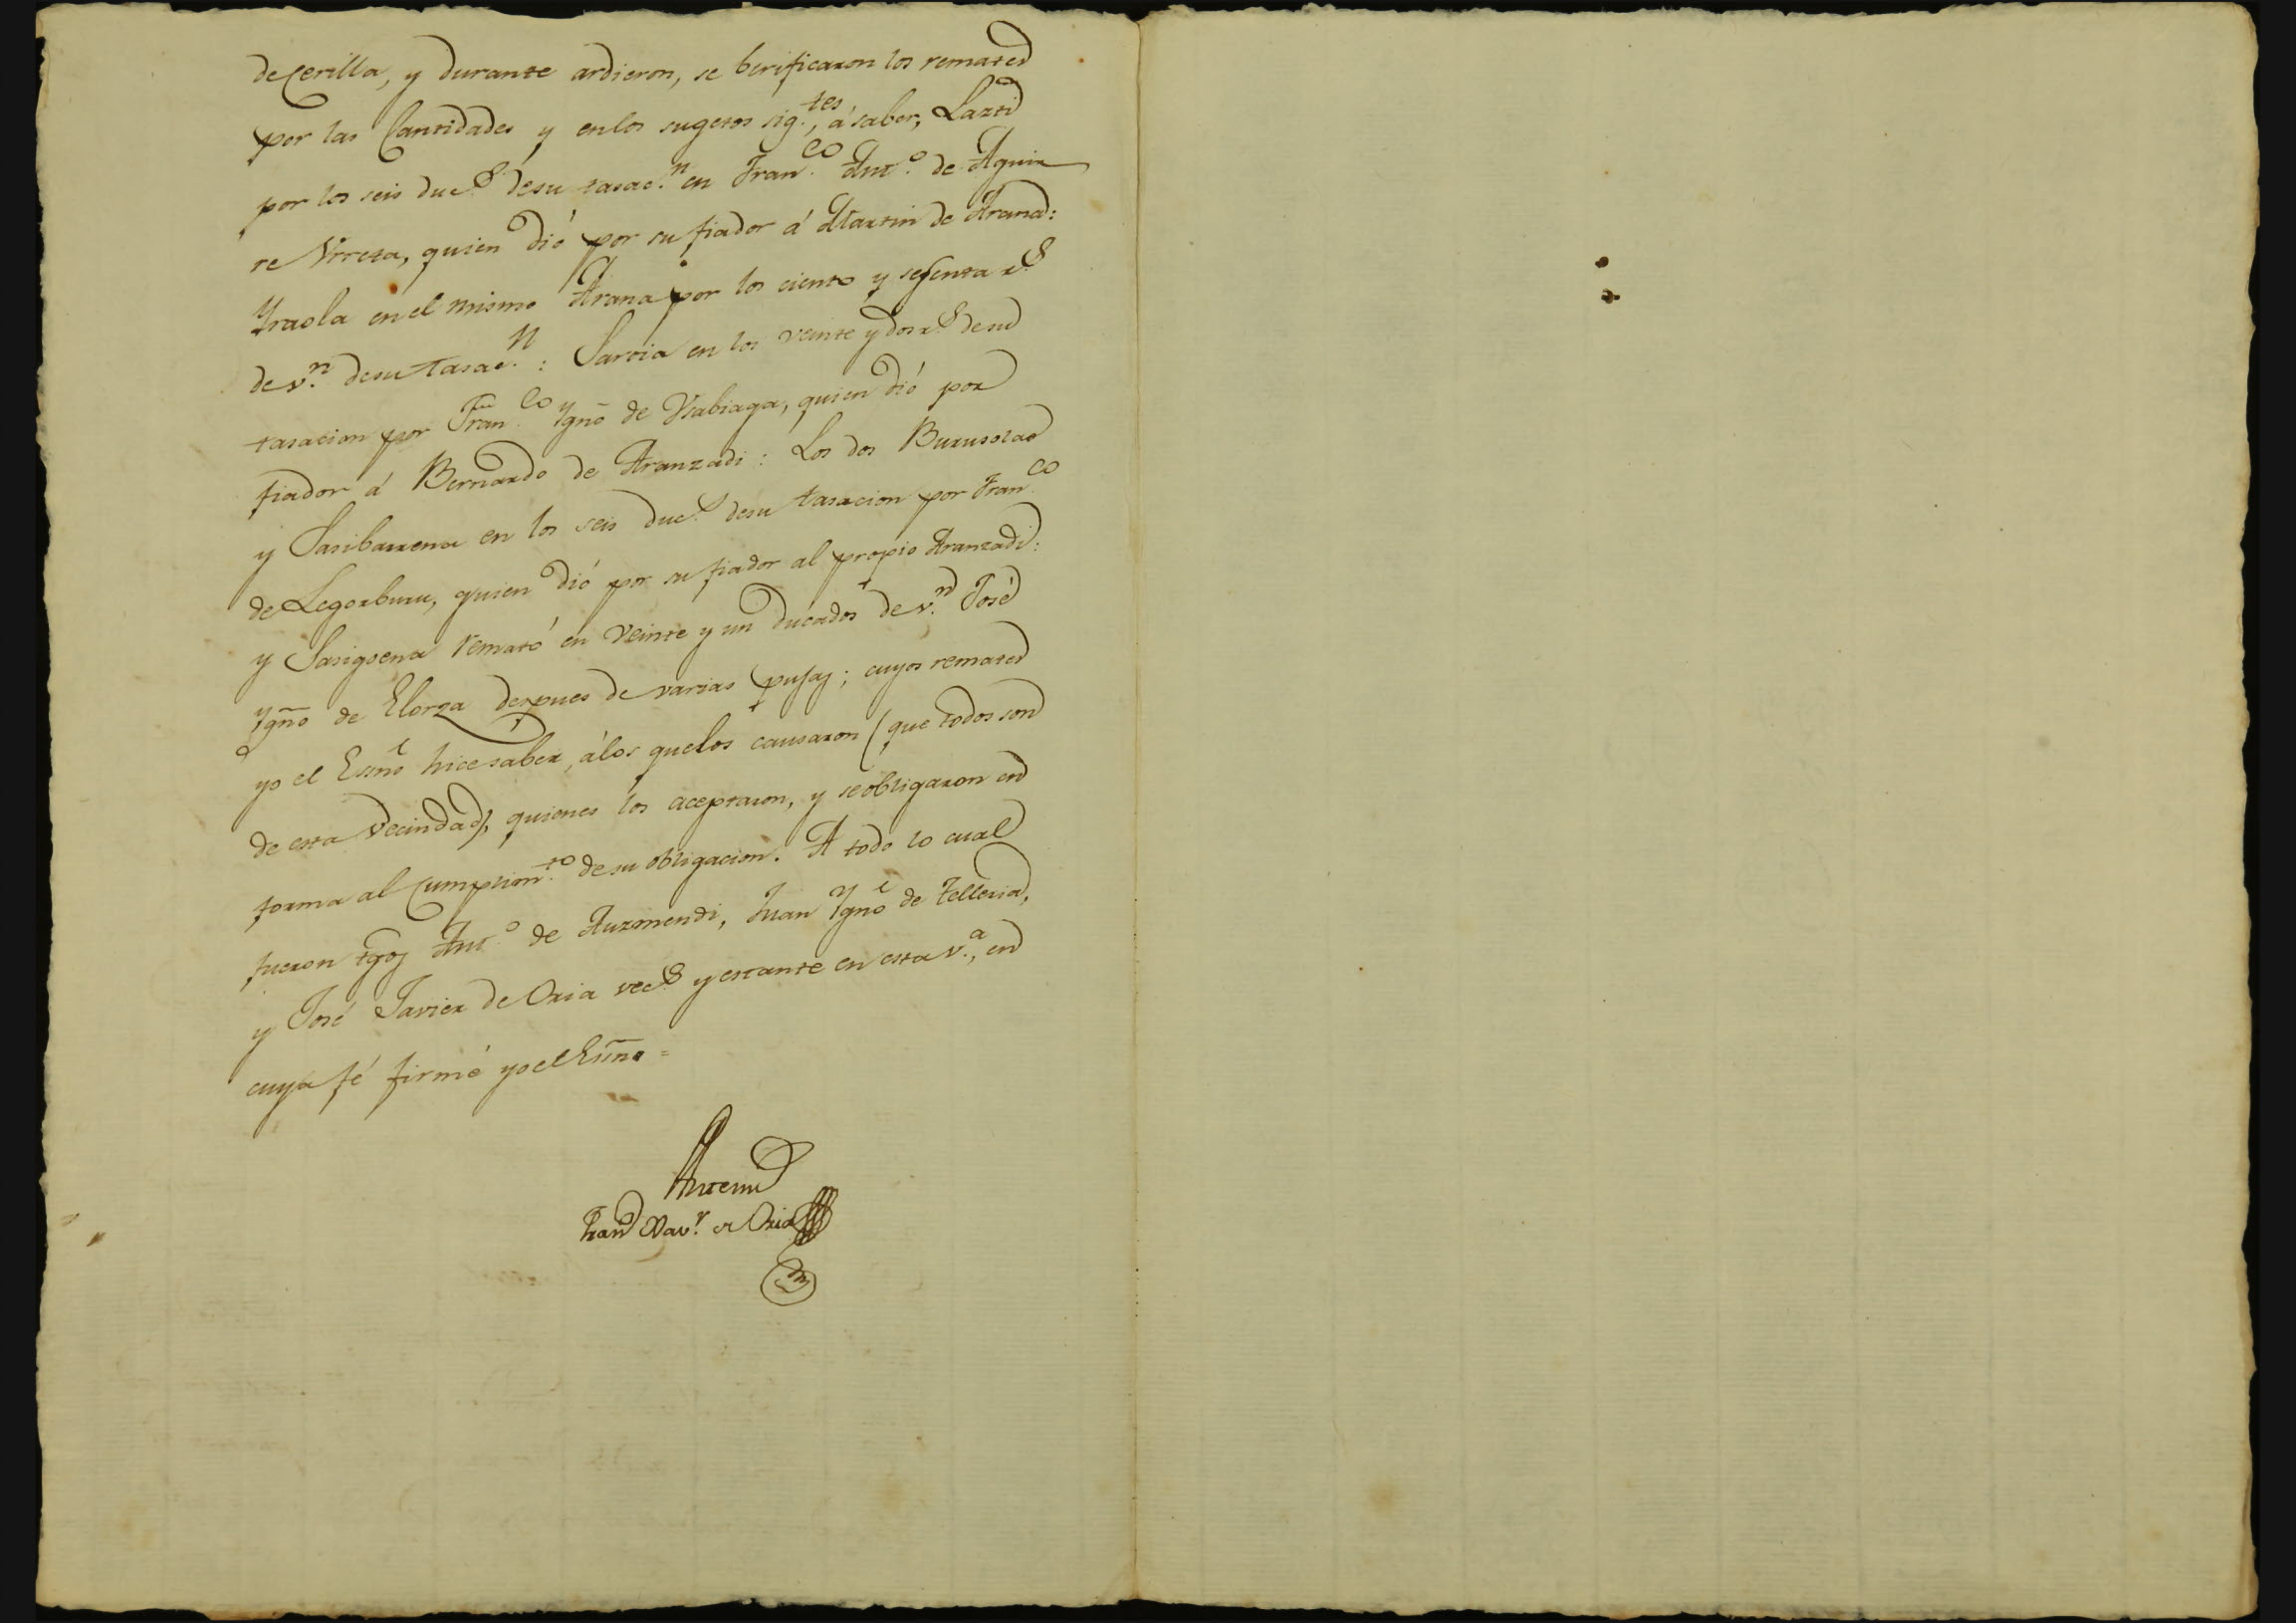 de cerilla, y durante ardieron, se berificaron los remates
por las Cantidades y en los sugetos sig.tes, á saber, Lazti
por los seis duc.s de su tasac.n en Fran.co Ant.o de Aguir
re Urreta, quien dió por su fiador á Martin de Arana:
Yraola en el mismo Arana por los ciento y sesenta r.s
de v.n de su tasac.n: Saroia en los veinte y dos r.s de su
tasacion por Fran.co Ygño de Usabiaga, quien dió por
fiador á Bernardo de Aranzadi: Los dos Burusolas
y Sasibarrena en los seis duc.s de su tasacion por Fran.co
de Legorburu, quien dió por su fiador al propio Aranzadi:
y Sasigoena remató en veinte y un ducados de v.n José
Ygño de Elorza despues de varias pujas; cuyos remates
yo el Essño hice saber, á los que los causaron (que todos son
de esta vecindad), quienes los aceptaron, y se obligaron en
forma al cumplim.to de su obligacion. A todo lo cual
fueron tgos Ant.o de Aurmendi, Juan Ygño de Telleria,
y José Javier de Oria vec.s y estante en esta v.a, en
cuya fé firmé yo el Essño =
Antemi
Fran Xav.r de Oria